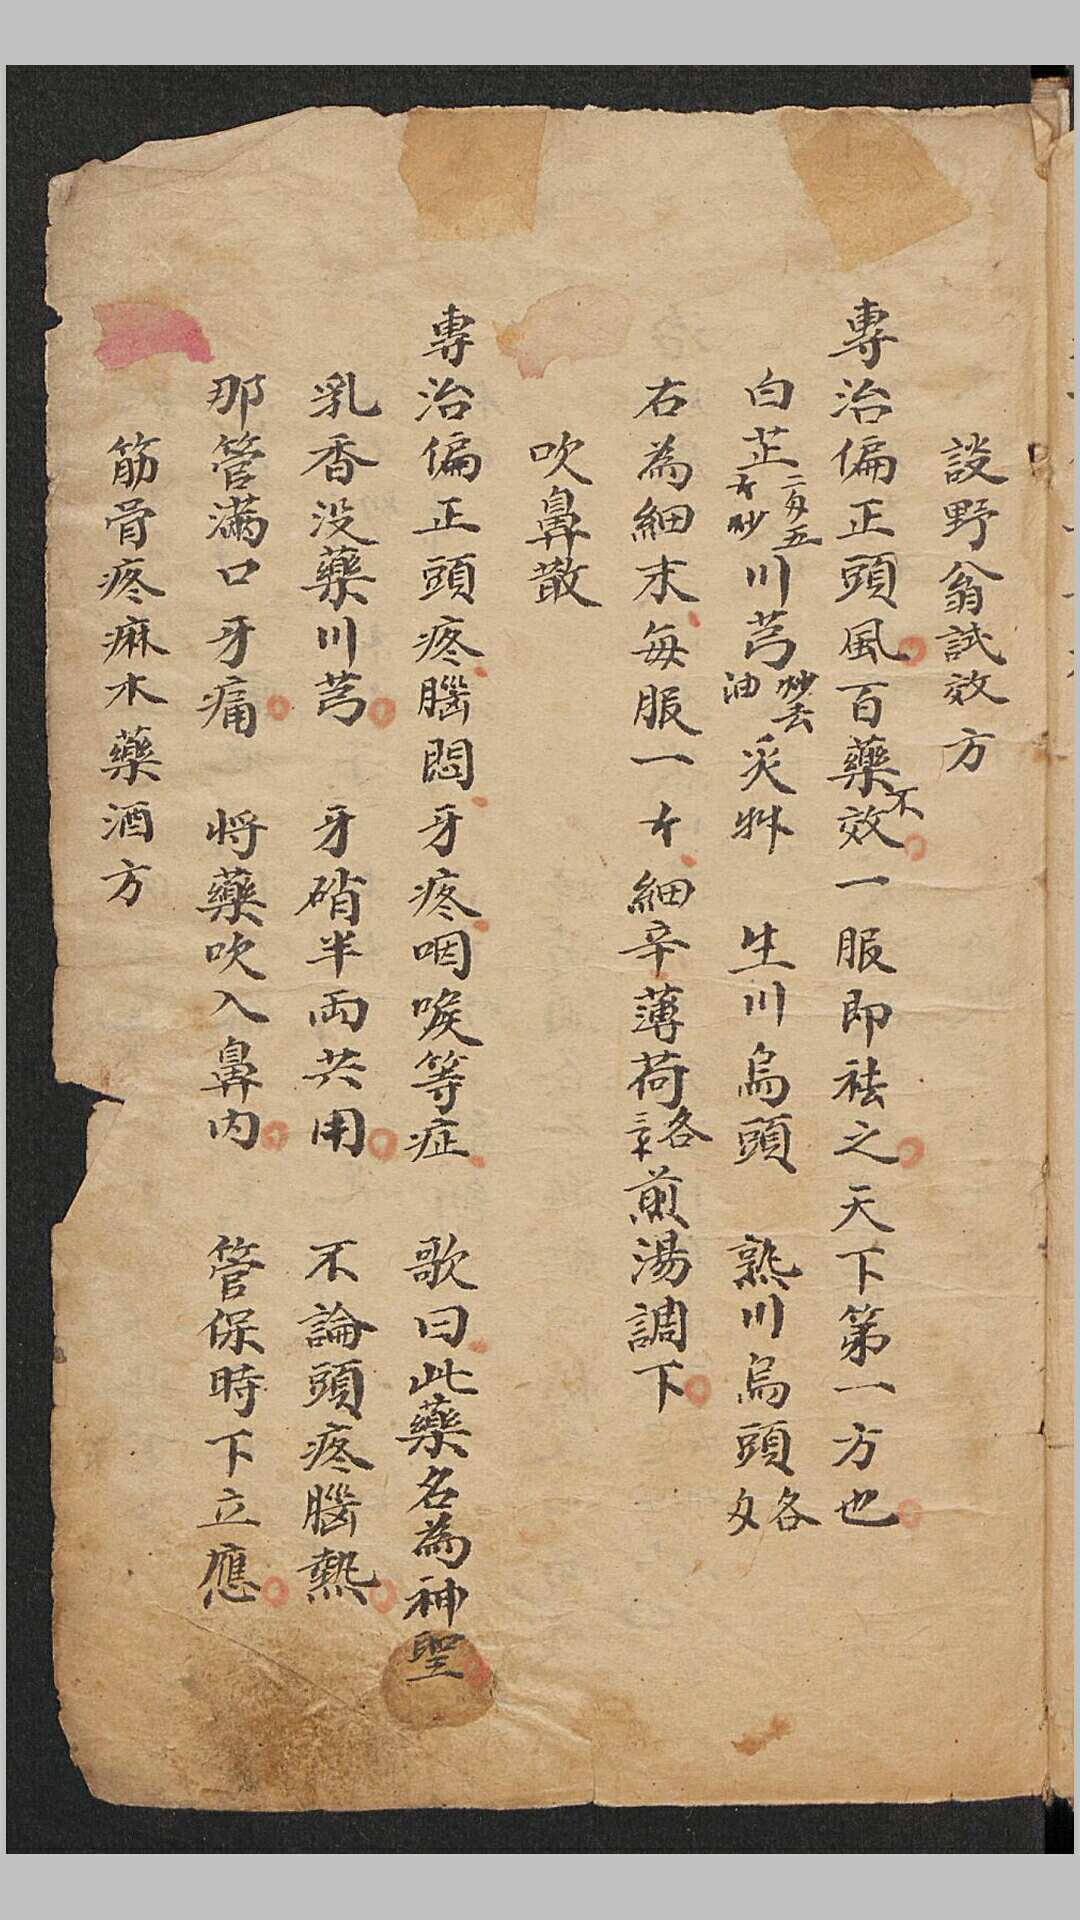 談野翁試效方
專治偏正頭風百藥不效一服即祛之天下第一方也
白芷二匁五个炒川芎炒去油炙艸生川烏頭熟川烏頭各匁
右為細末每服一个細辛薄荷各煎湯調下
吹鼻散
專治偏正頭疼腦悶牙疼咽喉等症歌曰此藥名為神聖
乳香没藥川芎牙硝半兩共用不論頭疼腦熱
那管滿口牙痛將藥吹入鼻內管保時下立應
筋骨疼痳木藥酒方